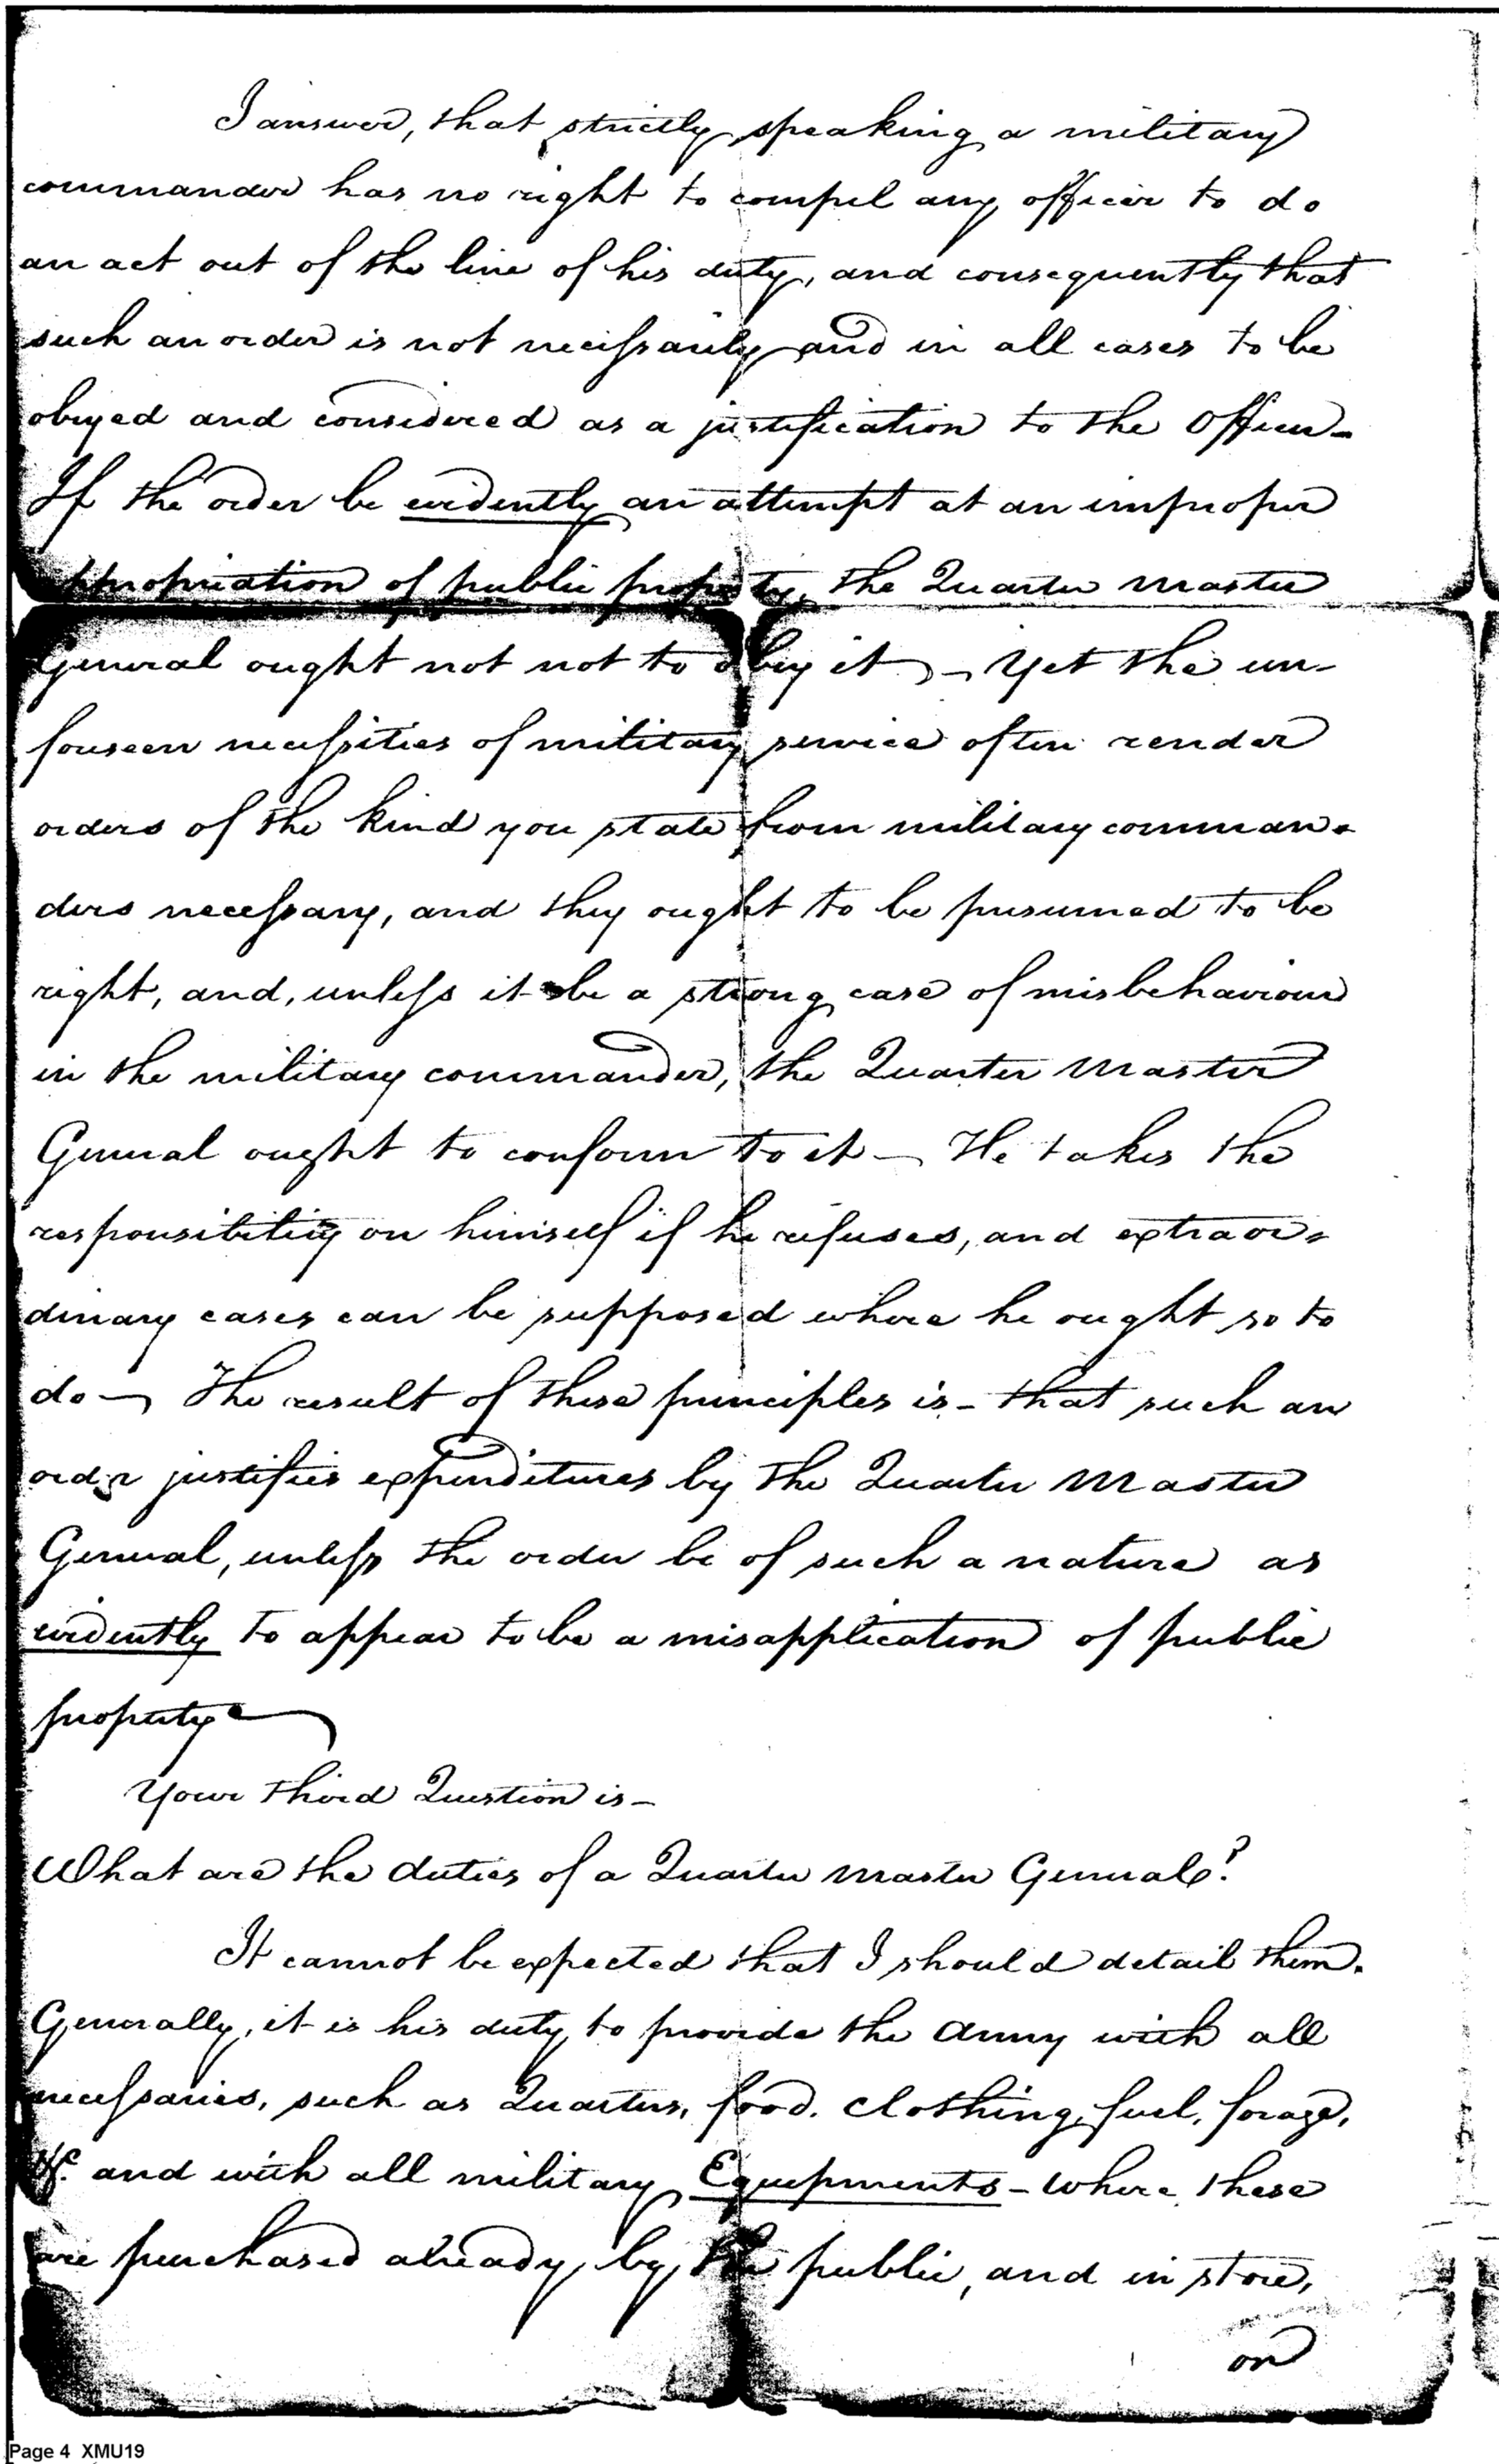 I answer, that strictly speaking a military
commander has no right to compel any officer to do
an act out of the line of his duty, and consequently that
such an order is not necessarily and in all cases to be
obeyed and considered as a justification to the Officer-
If the order be evidently an attempt at an improper
appropriation of public property, the Quarter Master
General ought not not to obey it - Yet the un-
foreseen necessities of military service often render
orders of the kind you state from military comman-
ders necessary, and they ought to be presumed to be
right, and, unless it be a strong case of misbehaviour
in the military commander, the Quarter Master
General ought to conform to it - He takes the
responsibility on himself if he refuses, and extraor-
dinary cases can be supposed where he ought so to
do - The result of these principles is - that such an
order justifies expenditures by the Quarter Master
General, unless the order be of such a nature as
evidently to appear to be a misapplication of public
property -
Your third Question is -
What are the duties of a Quarter Master General?
It cannot be expected that I should detail them.
Generally, it is his duty to provide the Army with all
necessaries, such as Quarters, food, Clothing, fuel, forage,
&c. and with all military Equipments - Where these
are purchased already by the public, and in store,
on
Page 4 XMU19